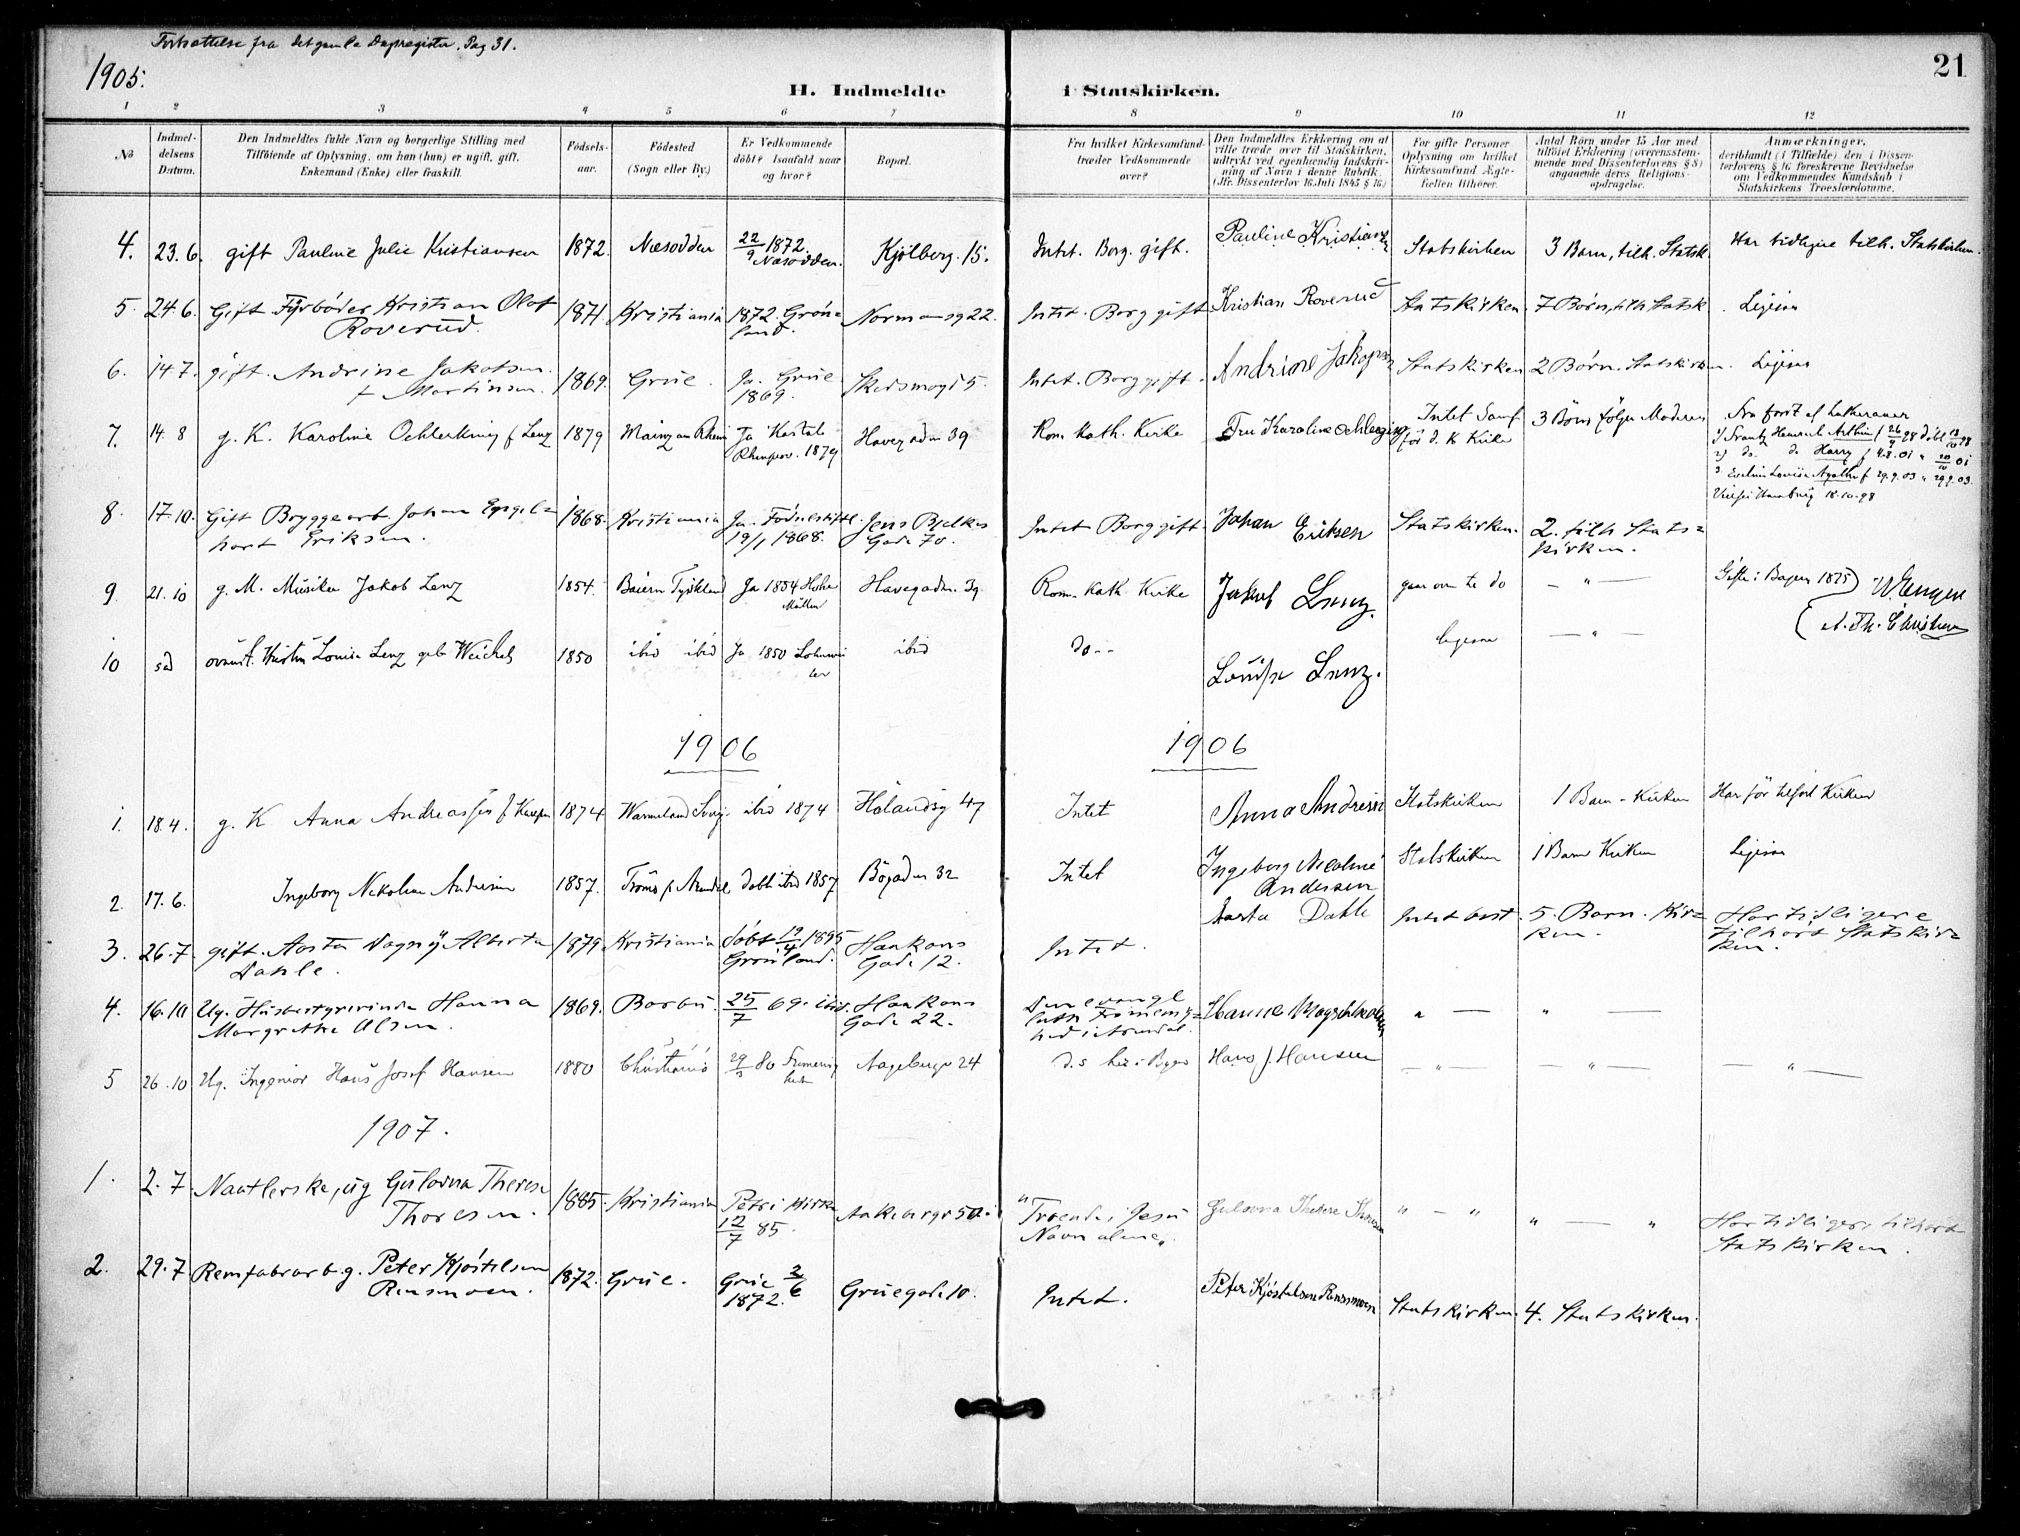 Fortsættelse fra det gamle Dapregister. Pag 31.
1905.
21
H. Indmeldte i Statskirken.
1 2 3 4 5 6 7 8 9 10 11 12
No
Indmel-
delsens
Datum.
Den Indmeldtes fulde Navn og borgerlige Stilling med
Tilföiende af Oplysning, om han (hun) er ugift, gift,
Enkemand (Enke) eller fraskilt.
Födsels-
aar.
Födested
(Sogn eller By.)
Er Vedkommende
döbt? Isaafald naar
og hvor?
Bopæl.
Fra hvilket Kirkesamfund
træder Vedkommende
over?
Den Indmeldtes Erklæring om at
ville træde over til Statskirken,
udtrykt ved egenhændig Indskriv-
ning af Navn i denne Rubrik.
(Jfr. Dissenterlov 16 Juli 1845 § 16)
For gifte Personer
Oplysning om hvilket
Kirkesamfund Ægte-
fællen tilhörer.
Antal Börn under 15 Aar med
tilföiet Erklæring (overensstem-
mende med Dissenterlovens § 8)
angaaende deres Religions-
opdragelse.
Anmærkninger,
deriblandt (i Tilfælde) den i Dissen-
terlovens § 16 foreskrevne Bevidnelse
om Vedkommendes Kundskab i
Statskirkens Troeslærdomme.
4. 23.6. gift Pauline Julie Kristiansen 1872. Næsodden 22/9 1872. Næsodden. Kjölberg. 15. Intet. Borg. gift. Pauline Kristiansen Statskirken 3 Barn, tilh. Statsk. Har tidligere tilh. Statskirken.
5. 24.6. Gift Fyrböder Kristian Olaf
Roverud. 1871. Kristiania 1872. Grön=
land. Normansg 22. Intet. Borg gift Kristian Roverud Statskirken. 7 Börn, tilh Statsk. Ligesaa
6. 14.7. gift. Andrine Jakobsen
f Martinsen. 1869. Grue. Ja. Grue
1869. Skedsmogt 5. Intet. Borg gift. Andrine Jakopsen Statskirken 2 Börn. Statskirken. Ligesaa
7. 14.8 g. K. Karoline f Lenz 1879 Mainz am Rhein Ja Kastel
1879 Havegaden 39 Rom. kath. Kirke Fru Karoline Intet Samf
för d. K Kirke 3 Börn følger Moderen
1) Frantz Heinrich Arthur f 26/9 98 döbt
2) do. do Harry f 4.8.01
3. Louise Agathe f 29.9.03
18.10.98
8. 17.10. Gift Bryggearb. Johan Engel=
hart Eriksen. 1868. Kristiania Ja. Födselsstift.
19/1 1868. Jens Bjelkes
Gade 70. Intet Borg gift Johan
Eriksen Statskirken. 2. tilh Stats=
kirken.
9. 21.10 g. M. Musiker Jakob Lenz 1854. Baiern Tyskland Ja 1854 Havegaden. 39 Rom. Kath. Kirke Jakob Lenz. gaar over te do — " — Gifte i Bayern 1875
10 s d ovennt. Louise Lenz geb. Weichel 1850 ibid ibid Ja 1850 ibid do - - Louise Lenz. ligesaa — " —
1906 1906
1. 18.4. g. K Anna Andreassen f 1874 Warmeland Sverig. ibid 1874 Hölandsg 47 Intet Anna Andresen Statskirken 1 Barn - Kirken Har för tilhört Kirken
2. 17.6. Ingeborg Nikoline Andersen 1857. Tromö p. Arendal döbt ibid 1857 Bögaden 32 Intet Ingeborg Nicoline
Andersen Statskirken 1 Barn Kirken Ligesaa
3. 26.7. gift. Aasta Dagny Alberta
Dahle. 1879. Kristiania döbt 19/4 1895
Grönland. Haakons
Gade 12. Intet. Aasta Dahle Intet best. 5. Barn. Kir=
ken. Har tidligere
tilhört Statskir=
ken.
4. 16.10 Ug. Husbestyrerinde Hanna
Margrethe Olsen. 1869. Barbu 25/7 69. ibid. Haakons
Gade 22. Den evangl
luth Frimenig=
hed i Arendal. Hanne " — " —
5 26.10 Ug. Ingeniør Hans Josef Hansen 1880 Christiania 80 Frimenig
hed Aagebergv 24 do her i Byen Hans J. Hansen — " — — " — — " —
1907.
1. 2.7. Naatlerske, ug Gulovna Therese
Thoresen. 1885. Kristiania Petri Kirke
12/7 85. Aakebergv 50. "Troende i Jesu
Navn alene". Gulovna Therese Thoresen " — " " — " Har tidligere tilhört
Statskirken.
2. 29.7 Remfabrarb g. Peter Kjöstelsen
Rensmoen. 1872. Grue. Grue 2/6
1872. Gruegade 10. Intet. Peter Kjöstelsen Rensmoen Statskirken. 4. Statskirken.